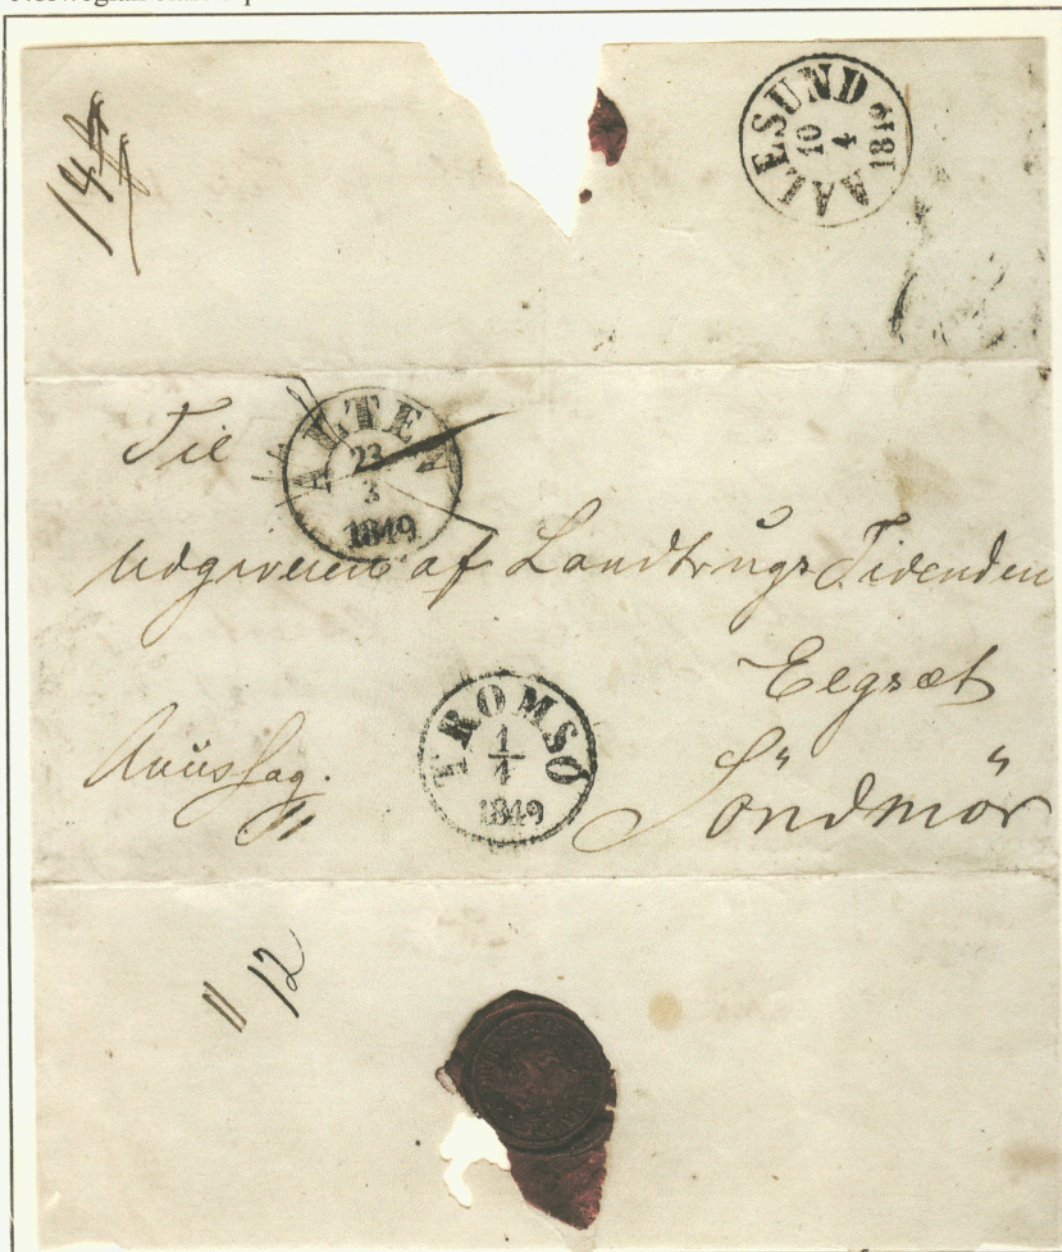 14
AALESUND
10
4
1849
Til
ALTEN
23
3
1849
Udgiveren af Landbrugs Tidenden
Eegsæt
Aviissag.
TROMSÖ
1
4
1849
Söndmör
11 12